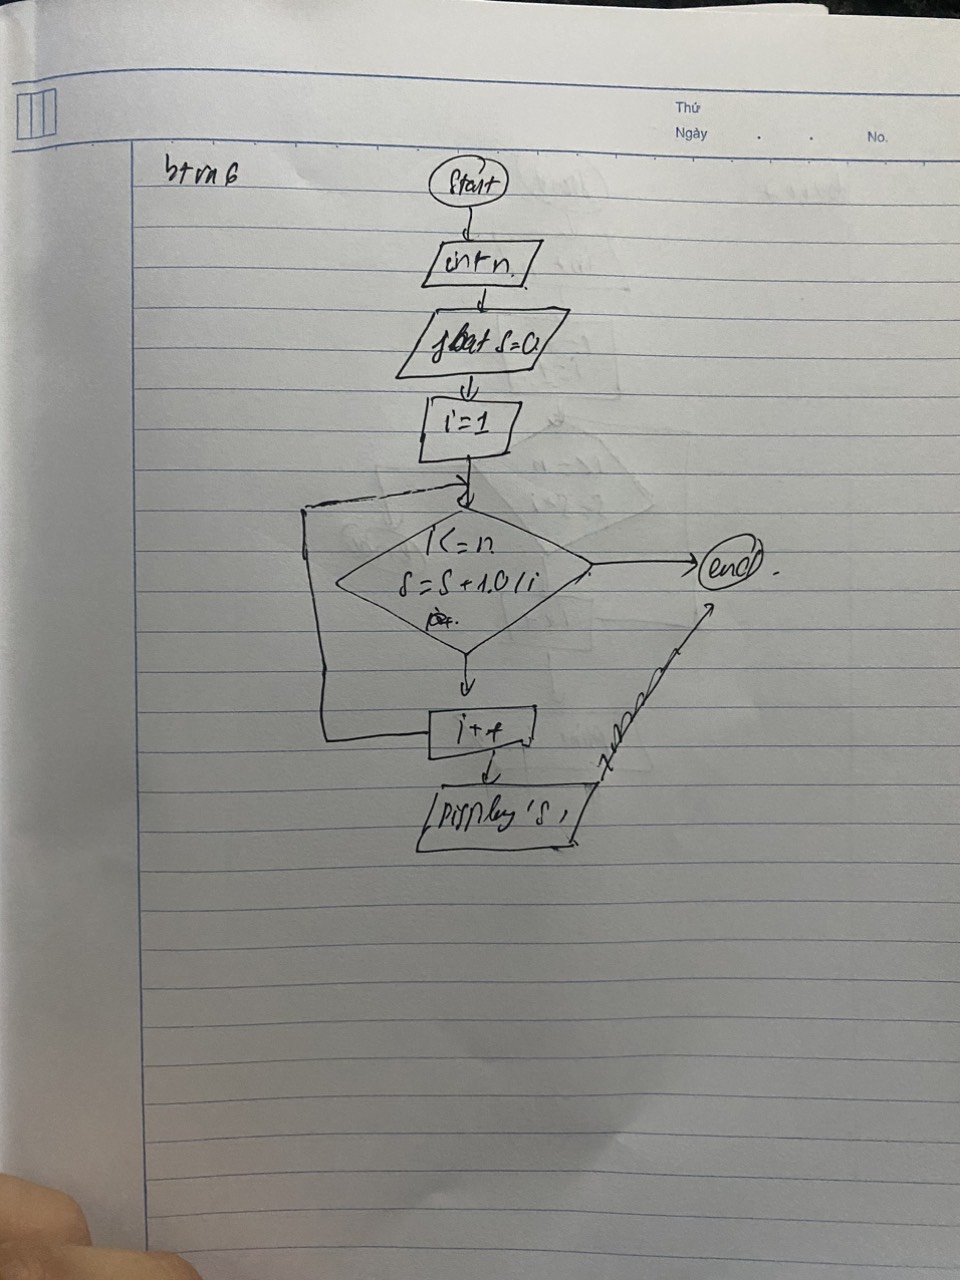 Thứ
Ngày . . No.
btvn 6
Start
int n
float S=0
i=1
i<=n
S=S+1.0/i
end
i++
Display 'S'